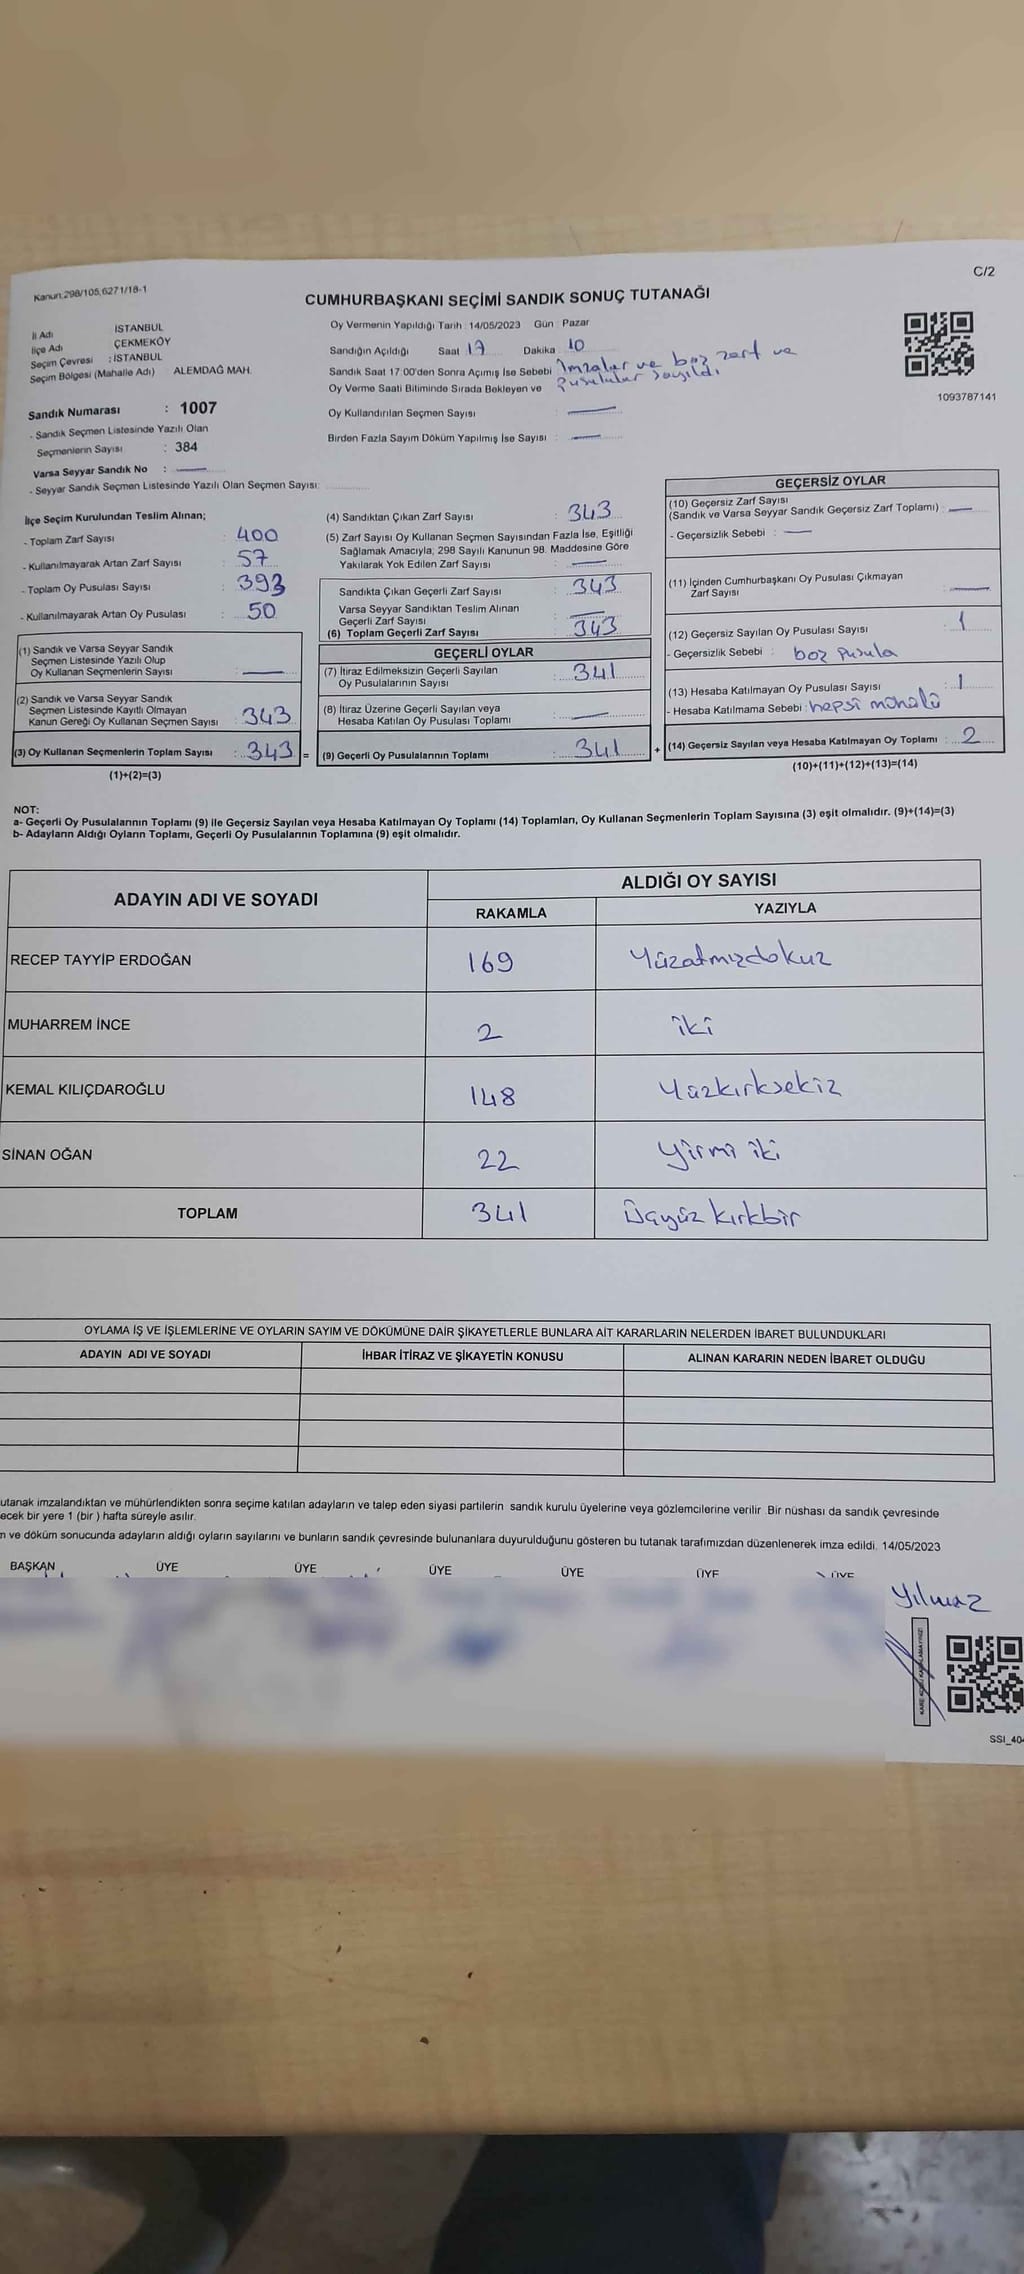 C/2
Kanun,298/105,6271/18-1
CUMHURBAŞKANI SEÇİMİ SANDIK SONUÇ TUTANAĞI
İl Adı İSTANBUL
İlçe Adı ÇEKMEKÖY
Seçim Çevresi : İSTANBUL
Seçim Bölgesi (Mahalle Adı) ALEMDAĞ MAH.
Sandık Numarası : 1007
- Sandık Seçmen Listesinde Yazılı Olan
Seçmenlerin Sayısı : 384
Varsa Seyyar Sandık No :
- Seyyar Sandık Seçmen Listesinde Yazılı Olan Seçmen Sayısı:
Oy Vermenin Yapıldığı Tarih : 14/05/2023 Gün : Pazar
Sandığın Açıldığı Saat 17 Dakika 10
Sandık Saat 17:00'den Sonra Açımış İse Sebebi İmzalar ve boz zarf ve
Oy Verme Saati Bitiminde Sırada Bekleyen ve pusulular sayıldı
Oy Kullandırılan Seçmen Sayısı :
Birden Fazla Sayım Döküm Yapılmış İse Sayısı :
1093787141
İlçe Seçim Kurulundan Teslim Alınan;
- Toplam Zarf Sayısı : 400
- Kullanılmayarak Artan Zarf Sayısı : 57
- Toplam Oy Pusulası Sayısı : 393
- Kullanılmayarak Artan Oy Pusulası : 50
(1) Sandık ve Varsa Seyyar Sandık
Seçmen Listesinde Yazılı Olup
Oy Kullanan Seçmenlerin Sayısı :
(2) Sandık ve Varsa Seyyar Sandık
Seçmen Listesinde Kayıtlı Olmayan
Kanun Gereği Oy Kullanan Seçmen Sayısı : 343
(3) Oy Kullanan Seçmenlerin Toplam Sayısı : 343 =
(1)+(2)=(3)
(4) Sandıktan Çıkan Zarf Sayısı : 343
(5) Zarf Sayısı Oy Kullanan Seçmen Sayısından Fazla İse, Eşitliği
Sağlamak Amacıyla, 298 Sayılı Kanunun 98. Maddesine Göre
Yakılarak Yok Edilen Zarf Sayısı :
Sandıkta Çıkan Geçerli Zarf Sayısı : 343
Varsa Seyyar Sandıktan Teslim Alınan
Geçerli Zarf Sayısı :
(6) Toplam Geçerli Zarf Sayısı : 343
GEÇERLİ OYLAR
(7) İtiraz Edilmeksizin Geçerli Sayılan
Oy Pusulalarının Sayısı : 341
(8) İtiraz Üzerine Geçerli Sayılan veya
Hesaba Katılan Oy Pusulası Toplamı :
(9) Geçerli Oy Pusulalarının Toplamı : 341 +
GEÇERSİZ OYLAR
(10) Geçersiz Zarf Sayısı
(Sandık ve Varsa Seyyar Sandık Geçersiz Zarf Toplamı) :
- Geçersizlik Sebebi :
(11) İçinden Cumhurbaşkanı Oy Pusulası Çıkmayan
Zarf Sayısı :
(12) Geçersiz Sayılan Oy Pusulası Sayısı : 1
- Geçersizlik Sebebi : boz pusula
(13) Hesaba Katılmayan Oy Pusulası Sayısı : 1
- Hesaba Katılmama Sebebi : hepsi mühülü
(14) Geçersiz Sayılan veya Hesaba Katılmayan Oy Toplamı : 2
(10)+(11)+(12)+(13)=(14)
NOT:
a- Geçerli Oy Pusulalarının Toplamı (9) ile Geçersiz Sayılan veya Hesaba Katılmayan Oy Toplamı (14) Toplamları, Oy Kullanan Seçmenlerin Toplam Sayısına (3) eşit olmalıdır. (9)+(14)=(3)
b- Adayların Aldığı Oyların Toplamı, Geçerli Oy Pusulalarının Toplamına (9) eşit olmalıdır.
ADAYIN ADI VE SOYADI ALDIĞI OY SAYISI
RAKAMLA YAZIYLA
RECEP TAYYİP ERDOĞAN 169 Yüzatmışdokuz
MUHARREM İNCE 2 iki
KEMAL KILIÇDAROĞLU 148 Yüzkırksekiz
SİNAN OĞAN 22 Yirmi iki
TOPLAM 341 Üçyüz kırkbir
OYLAMA İŞ VE İŞLEMLERİNE VE OYLARIN SAYIM VE DÖKÜMÜNE DAİR ŞİKAYETLERLE BUNLARA AİT KARARLARIN NELERDEN İBARET BULUNDUKLARI
ADAYIN ADI VE SOYADI İHBAR İTİRAZ VE ŞİKAYETİN KONUSU ALINAN KARARIN NEDEN İBARET OLDUĞU
utanak imzalandıktan ve mühürlendikten sonra seçime katılan adayların ve talep eden siyasi partilerin sandık kurulu üyelerine veya gözlemcilerine verilir. Bir nüshası da sandık çevresinde
ecek bir yere 1 (bir ) hafta süreyle asılır.
n ve döküm sonucunda adayların aldığı oyların sayılarını ve bunların sandık çevresinde bulunanlara duyurulduğunu gösteren bu tutanak tarafımızdan düzenlenerek imza edildi. 14/05/2023
BAŞKAN ÜYE ÜYE ÜYE ÜYE ÜYE ÜYE
Yılmaz
KARE KODU KARALAMAYINIZ!
SSI_40